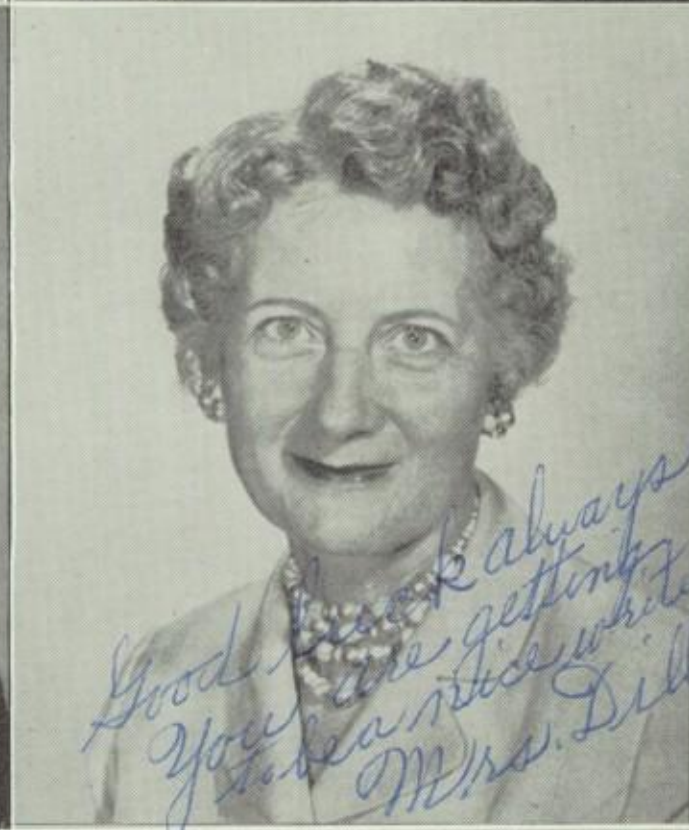 Good luck always
You are getting
to be a nice write
Mrs. Dill